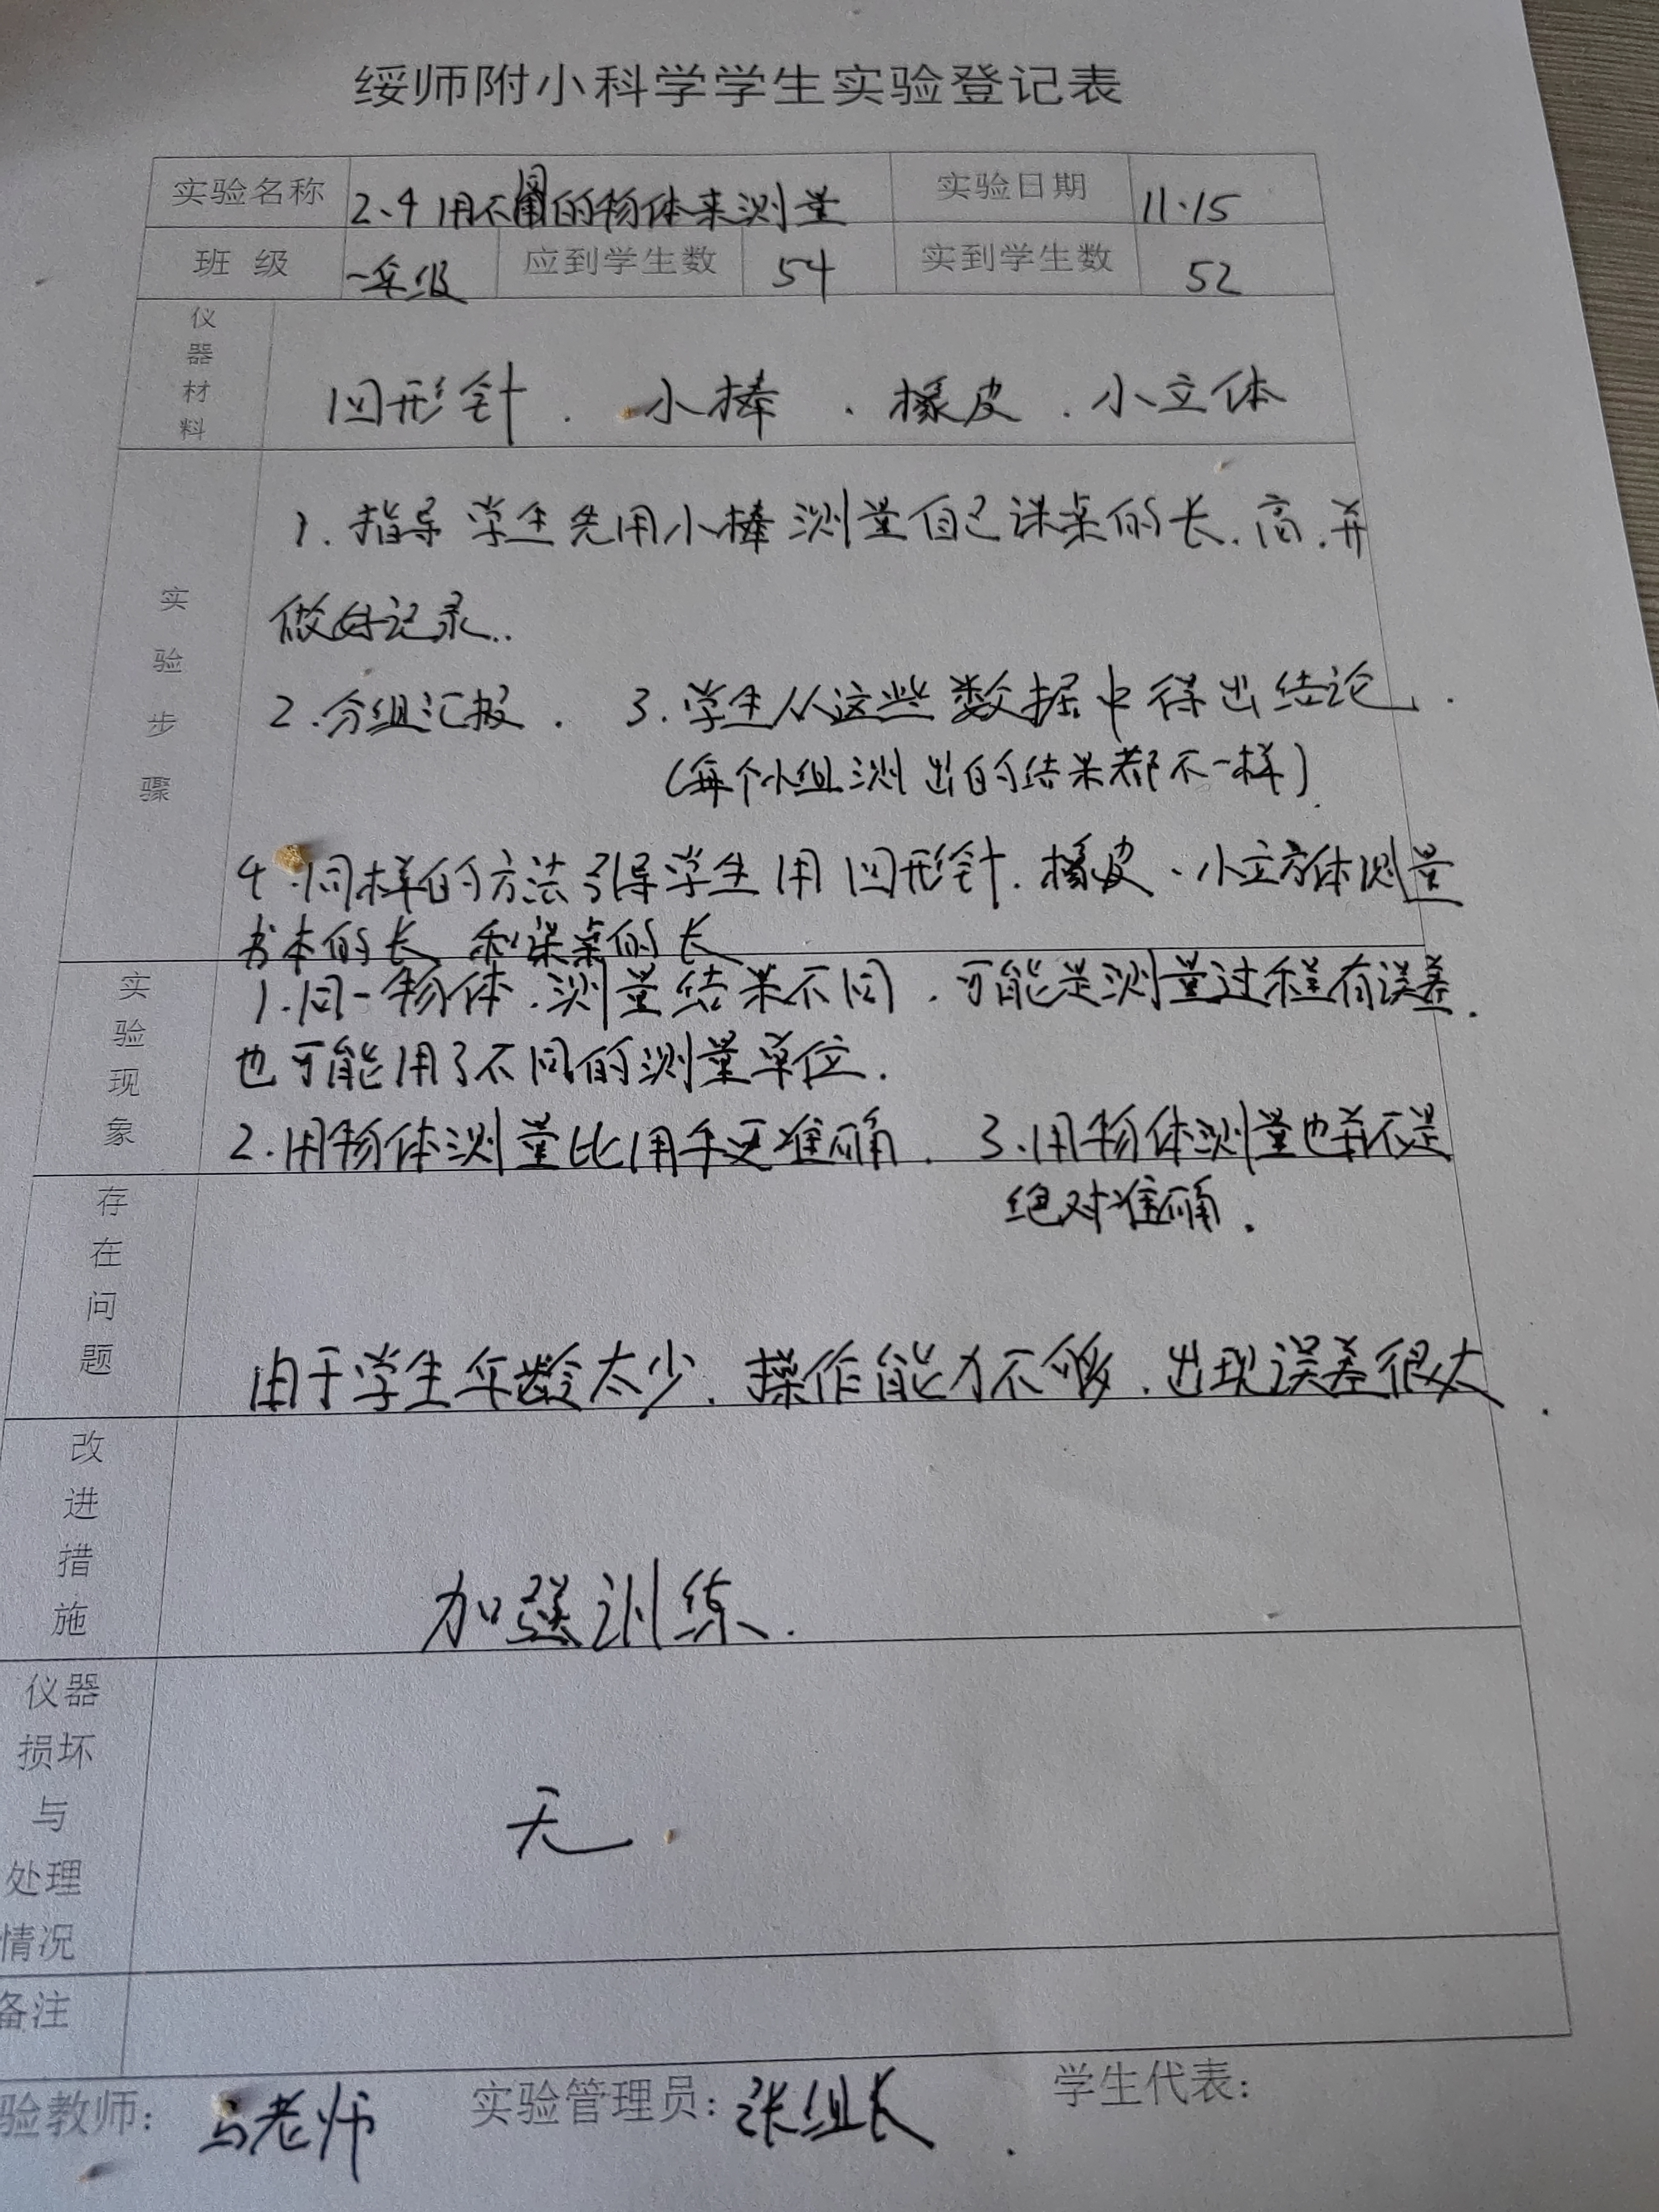 绥师附小科学学生实验登记表
实验名称 2.4 用不同的物体来测量 实验日期 11.15
班 级 一年级 应到学生数 54 实到学生数 52
仪器材料 回形针、小棒、橡皮、小立体
实验步骤
1.指导学生先用小棒测量自己课桌的长、高,并
做好记录..
2.分组汇报. 3.学生从这些数据中得出结论.
(每个小组测出的结果都不一样).
4.同样的方法引导学生用回形针、橡皮、小立方体测量
书本的长和课桌的长
实验现象
1.同一物体,测量结果不同,可能是测量过程有误差.
也可能用了不同的测量单位.
2.用物体测量比用手更准确. 3.用物体测量也并不是
绝对准确.
存在问题
由于学生年龄太少,操作能力不够,出现误差很大.
改进措施
加强训练.
仪器损坏与处理情况
无.
备注
验教师: 马老师 实验管理员: 张组长. 学生代表: